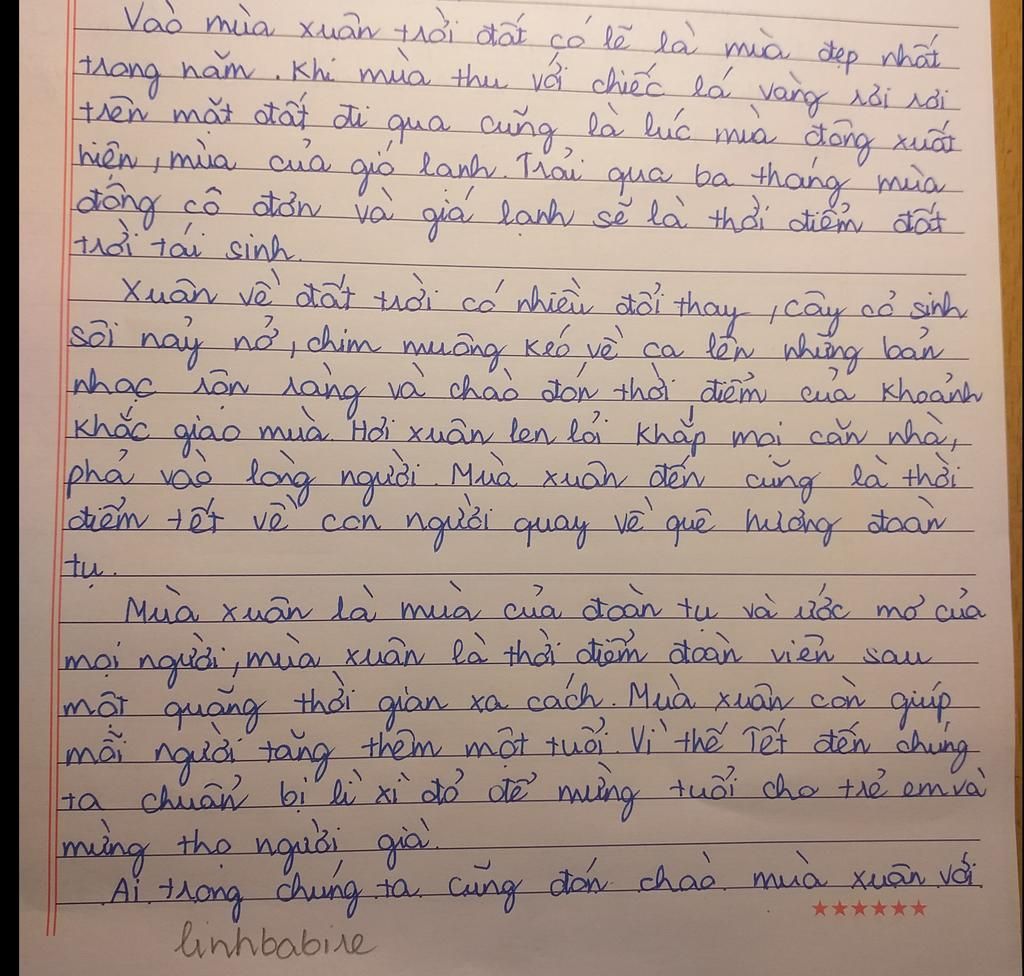 Vào mùa xuân trời đất có lẽ là mùa đẹp nhất
trong năm. Khi mùa thu với chiếc lá vàng rơi rơi
trên mặt đất đi qua cũng là lúc mùa đông xuất
hiện, mùa của gió lạnh. Trải qua ba tháng mùa
đông cô đơn và giá lạnh sẽ là thời điểm đất
trời tái sinh.
Xuân về đất trời có nhiều đổi thay, cây cỏ sinh
sôi nảy nở, chim muông kéo về ca lên những bản
nhạc rộn ràng và chào đón thời điểm của khoảnh
khắc giao mùa. Hơi xuân len lỏi khắp mọi căn nhà,
phả vào lòng người. Mùa xuân đến cũng là thời
điểm tết về con người quay về quê hương đoàn
tụ.
Mùa xuân là mùa của đoàn tụ và ước mơ của
mọi người, mùa xuân là thời điểm đoàn viên sau
một quãng thời gian xa cách. Mùa xuân còn giúp
mỗi người tăng thêm một tuổi. Vì thế Tết đến chúng
ta chuẩn bị lì xì đỏ để mừng tuổi cho trẻ em và
mừng thọ người già.
Ai trong chúng ta cũng đón chào mùa xuân với
linhbabire